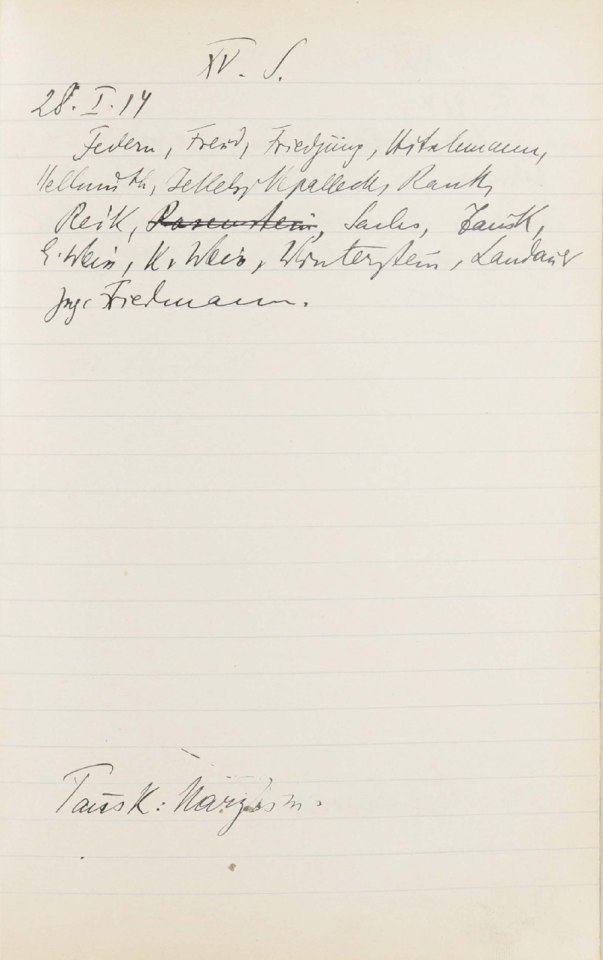 XV. S.
28. I. 14
Federn, Freud, Friedjung, Hitschmann,
Hellmuth, Jekels, Kpalleck, Rank,
Reik, Rosenstein, Sachs, Tausk,
E. Weiss, K. Weiss, Winterstein, Landauer
Ing. Friedmann.
Tausk: Narzism.